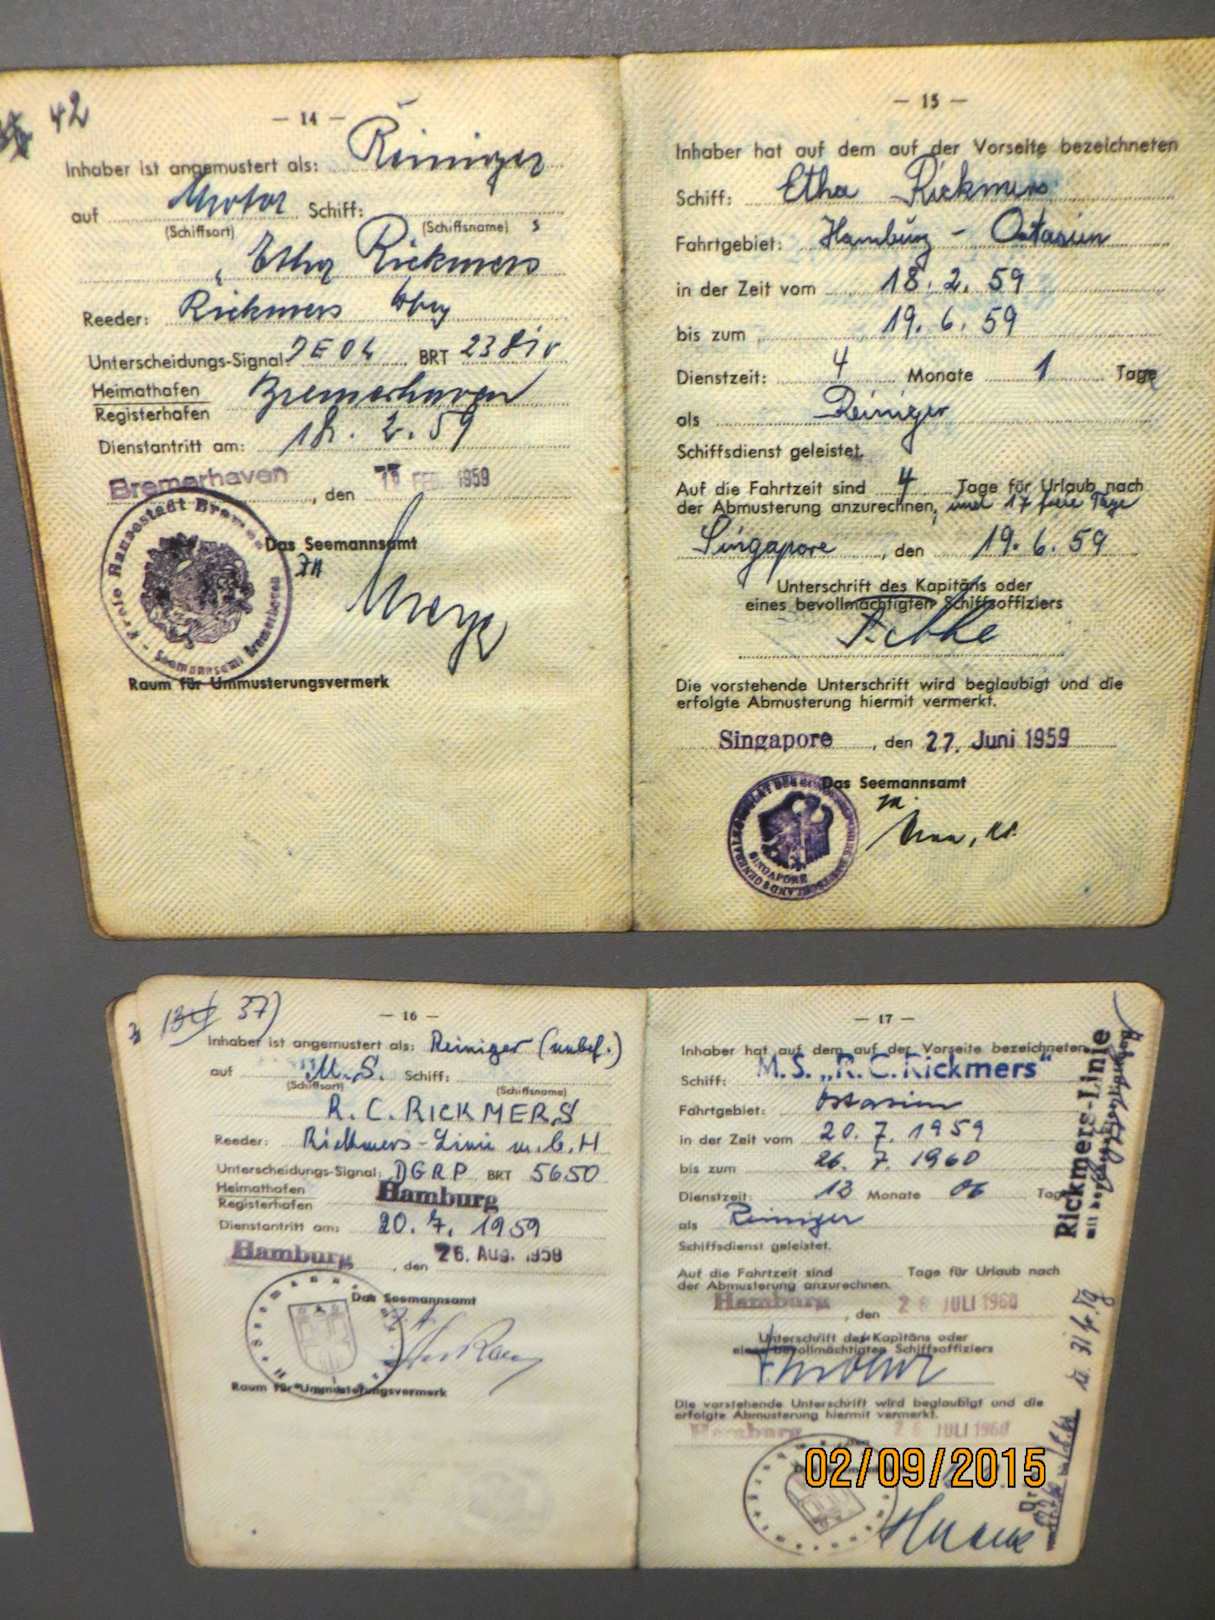 42
— 14 —
Inhaber ist angemustert als: Reiniger
auf Motor Schiff:
(Schiffsort) (Schiffsname) s
„Etha Rickmers
Reeder: Rickmers
Unterscheidungs-Signal: BRT
Heimathafen
Registerhafen Bremerhaven
Dienstantritt am: 18. 2. 59
Bremerhaven, den FEB. 1959
Das Seemannsamt
Freie Hansestadt Bremen
Seemannsamt Bremerhaven
Raum für Ummusterungsvermerk
— 15 —
Inhaber hat auf dem auf der Vorseite bezeichneten
Schiff: Etha Rickmers
Fahrtgebiet: Hamburg - Ostasien
in der Zeit vom 18. 2. 59
bis zum 19. 6. 59
Dienstzeit: 4 Monate 1 Tage
als Reiniger
Schiffsdienst geleistet.
Auf die Fahrtzeit sind 4 Tage für Urlaub nach
der Abmusterung anzurechnen, und 17 freie Tage
Singapore, den 19. 6. 59
Unterschrift des Kapitäns oder
eines bevollmächtigten Schiffsoffiziers
Die vorstehende Unterschrift wird beglaubigt und die
erfolgte Abmusterung hiermit vermerkt.
Singapore, den 27. Juni 1959
Das Seemannsamt
SINGAPORE
37)
— 16 —
Inhaber ist angemustert als: Reiniger (unbef.)
auf M.S. Schiff:
(Schiffsort) (Schiffsname)
R. C. RICKMERS
Reeder: Rickmers-Linie m.b.H
Unterscheidungs-Signal: DGRP BRT 5650
Heimathafen
Registerhafen Hamburg
Dienstantritt am: 20. 7. 1959
Hamburg, den 26. Aug. 1959
Das Seemannsamt
Raum für Ummusterungsvermerk
— 17 —
Inhaber hat auf dem auf der Vorseite bezeichneten
Schiff: M.S. „R. C. Rickmers"
Fahrtgebiet: Ostasien
in der Zeit vom 20. 7. 1959
bis zum 26. 7. 1960
Dienstzeit: 12 Monate 06 Tag
als Reiniger
Schiffsdienst geleistet.
Auf die Fahrtzeit sind Tage für Urlaub nach
der Abmusterung anzurechnen.
Hamburg, den 26 JULI 1960
Unterschrift des Kapitäns oder
eines bevollmächtigten Schiffsoffiziers
Die vorstehende Unterschrift wird beglaubigt und die
erfolgte Abmusterung hiermit vermerkt.
Hamburg 26 JULI 1960
Rickmers-Linie
02/09/2015